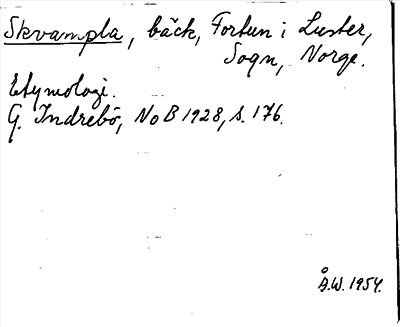 Skvampla, bäck, Fortun i Luster,
Sogn, Norge.
Etymologi.
G. Indrebö, NoB 1928, s. 176.
Å.W. 1954.